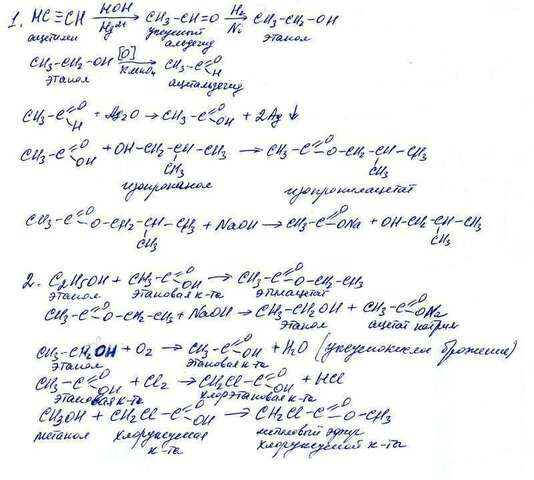 1. HC≡CH —HOH/Hg²⁺→ CH₃-CH=O —H₂/Ni→ CH₃-CH₂-OH
ацетилен уксусный альдегид этанол
CH₃-CH₂-OH —[O]/KMnO₄→ CH₃-C(=O)H
этанол ацетальдегид
CH₃-C(=O)H + Ag₂O → CH₃-C(=O)OH + 2Ag↓
CH₃-C(=O)OH + OH-CH₂-CH(CH₃)-CH₃ → CH₃-C(=O)-O-CH₂-CH(CH₃)-CH₃
изопропанол изопропилацетат
CH₃-C(=O)-O-CH₂-CH(CH₃)-CH₃ + NaOH → CH₃-C(=O)ONa + OH-CH₂-CH(CH₃)-CH₃
2. C₂H₅OH + CH₃-C(=O)OH → CH₃-C(=O)-O-CH₂-CH₃
этанол этановая к-та этилацетат
CH₃-C(=O)-O-CH₂-CH₃ + NaOH → CH₃-CH₂OH + CH₃-C(=O)ONa
этанол ацетат натрия
CH₃-CH₂OH + O₂ → CH₃-C(=O)OH + H₂O (уксуснокислое брожение)
этанол этановая к-та
CH₃-C(=O)OH + Cl₂ → CH₂Cl-C(=O)OH + HCl
этановая к-та хлорэтановая к-та
CH₃OH + CH₂Cl-C(=O)OH → CH₂Cl-C(=O)-O-CH₃
метанол хлоруксусная к-та метиловый эфир хлоруксусной к-ты